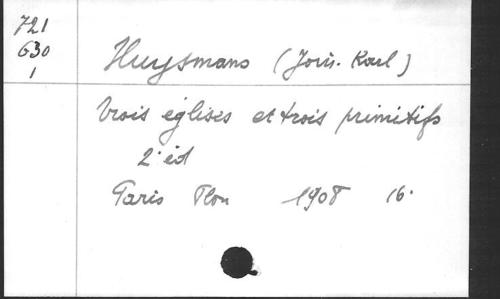 721
630
1
Huysmans (Joris-Karl)
Trois églises et trois primitifs
2e éd
Paris Plon 1908 16.